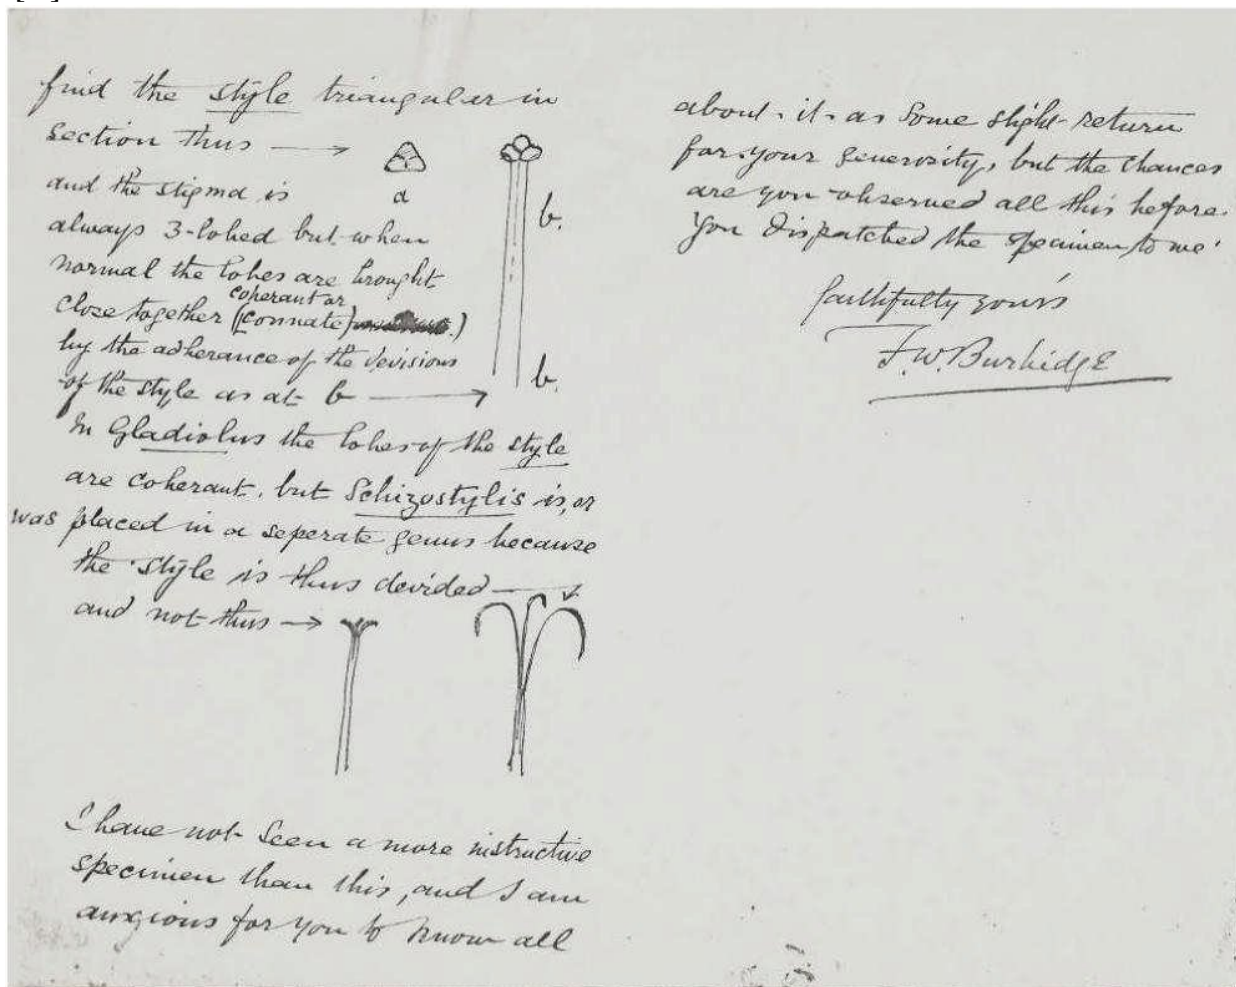 find the style triangular in
section thus
a
b.
and the stigma is
always 3-lobed but when
normal the lobes are brought
coherant or
close together (connate)
by the adherance of the devisions
of the style as at b
b.
In Gladiolus the lobes of the style
are coherant, but Schizostylis is, or
was placed in a seperate genus because
the style is thus devided
and not thus
I have not seen a more instructive
specimen than this, and I am
anxious for you to know all
about it as some slight return
for your generosity, but the chances
are you observed all this before
you dispatched the specimen to me
faithfully yours
F.W. Burbidge